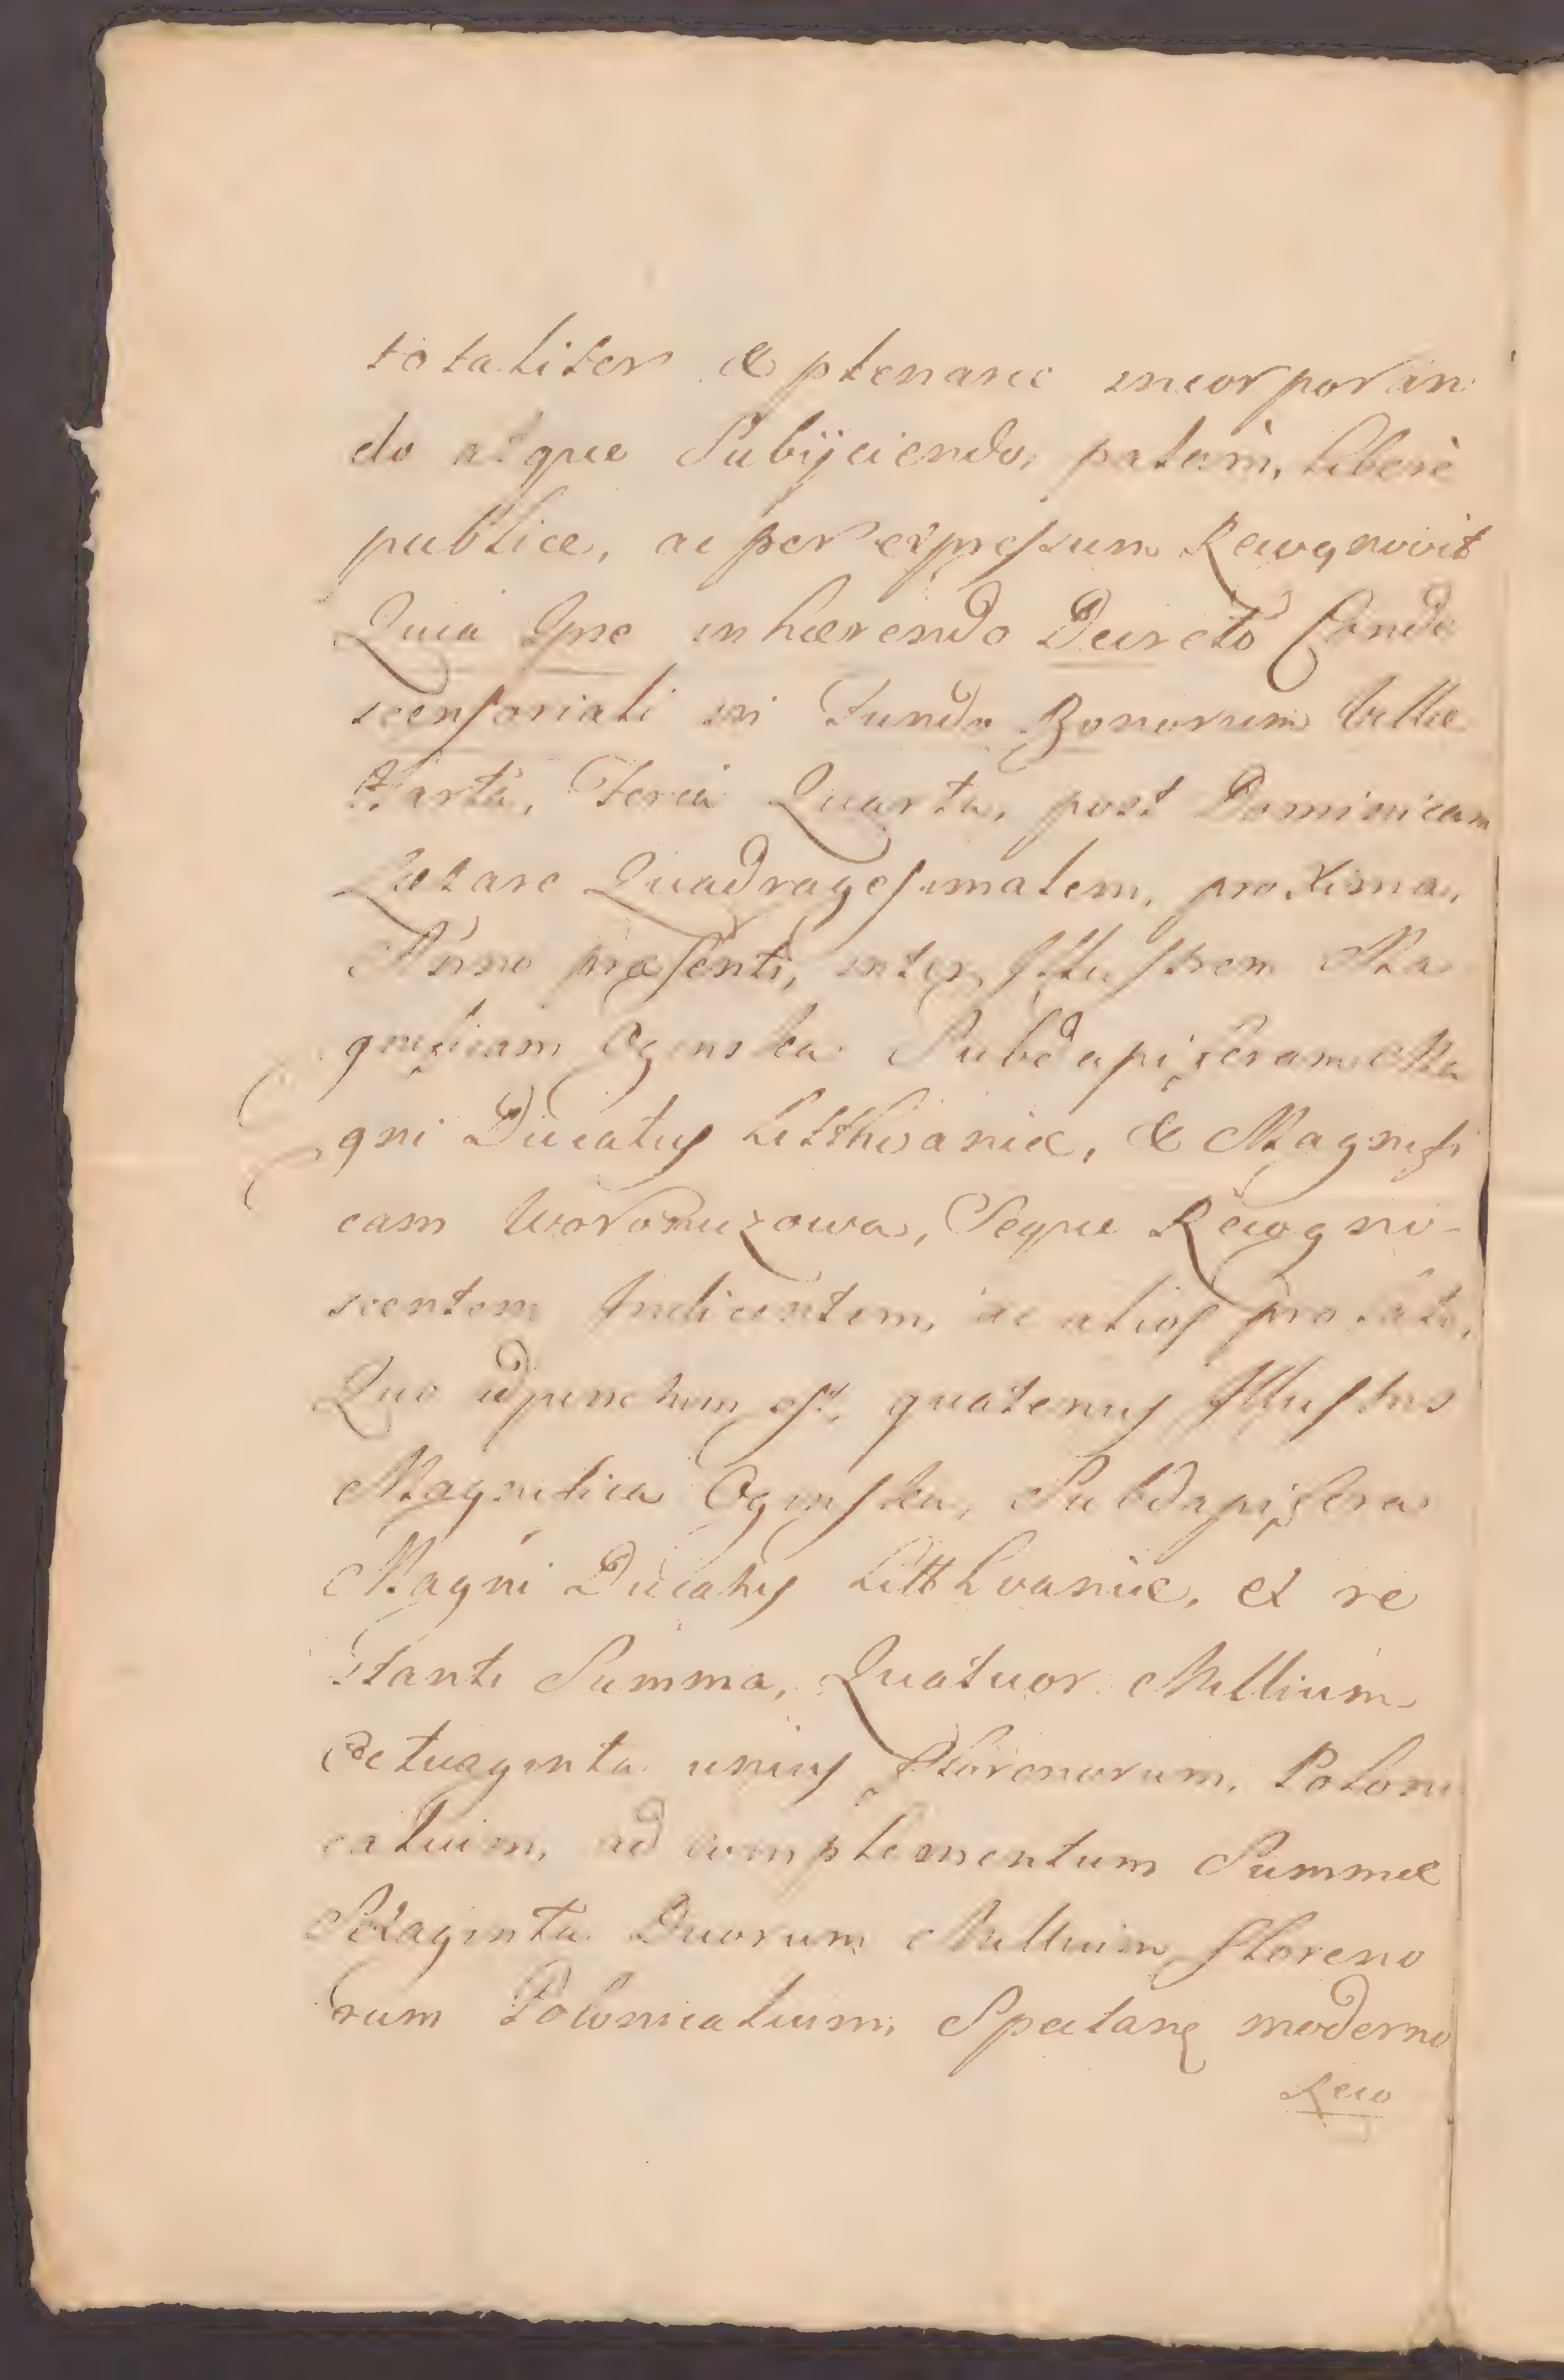 totaliter & plenarie incorporan
do atque Subijciendo, palam, liberè
publice, ac per expressum Recognovit
Quia Ipse inhærendo Decreto Conde
scensoriali in Fundo Bonorum Villæ
Feria Quarta, post Dominicam
Lætare Quadragesimalem, proxima,
Anno præsenti, inter Illustrem Ma
gnificam Oginska Subdapiferam Ma
gni Ducatus Litthvaniæ, & Magnifi
cam Woronuzowa, Seque Recogno-
scentem Indicentem, ac alios prolato,
Quo adjunctum est, quatenus Illustris
Magnifica Oginska, Subdapifera
Magni Ducatus Litthvaniæ, et re
stanti Summa, Quatuor Millium
Octuaginta unius Florenorum, Poloni
calium, ad complementum Summæ
Duorum Millium floreno
rum Polonicalium, Spectans moderno
Reco